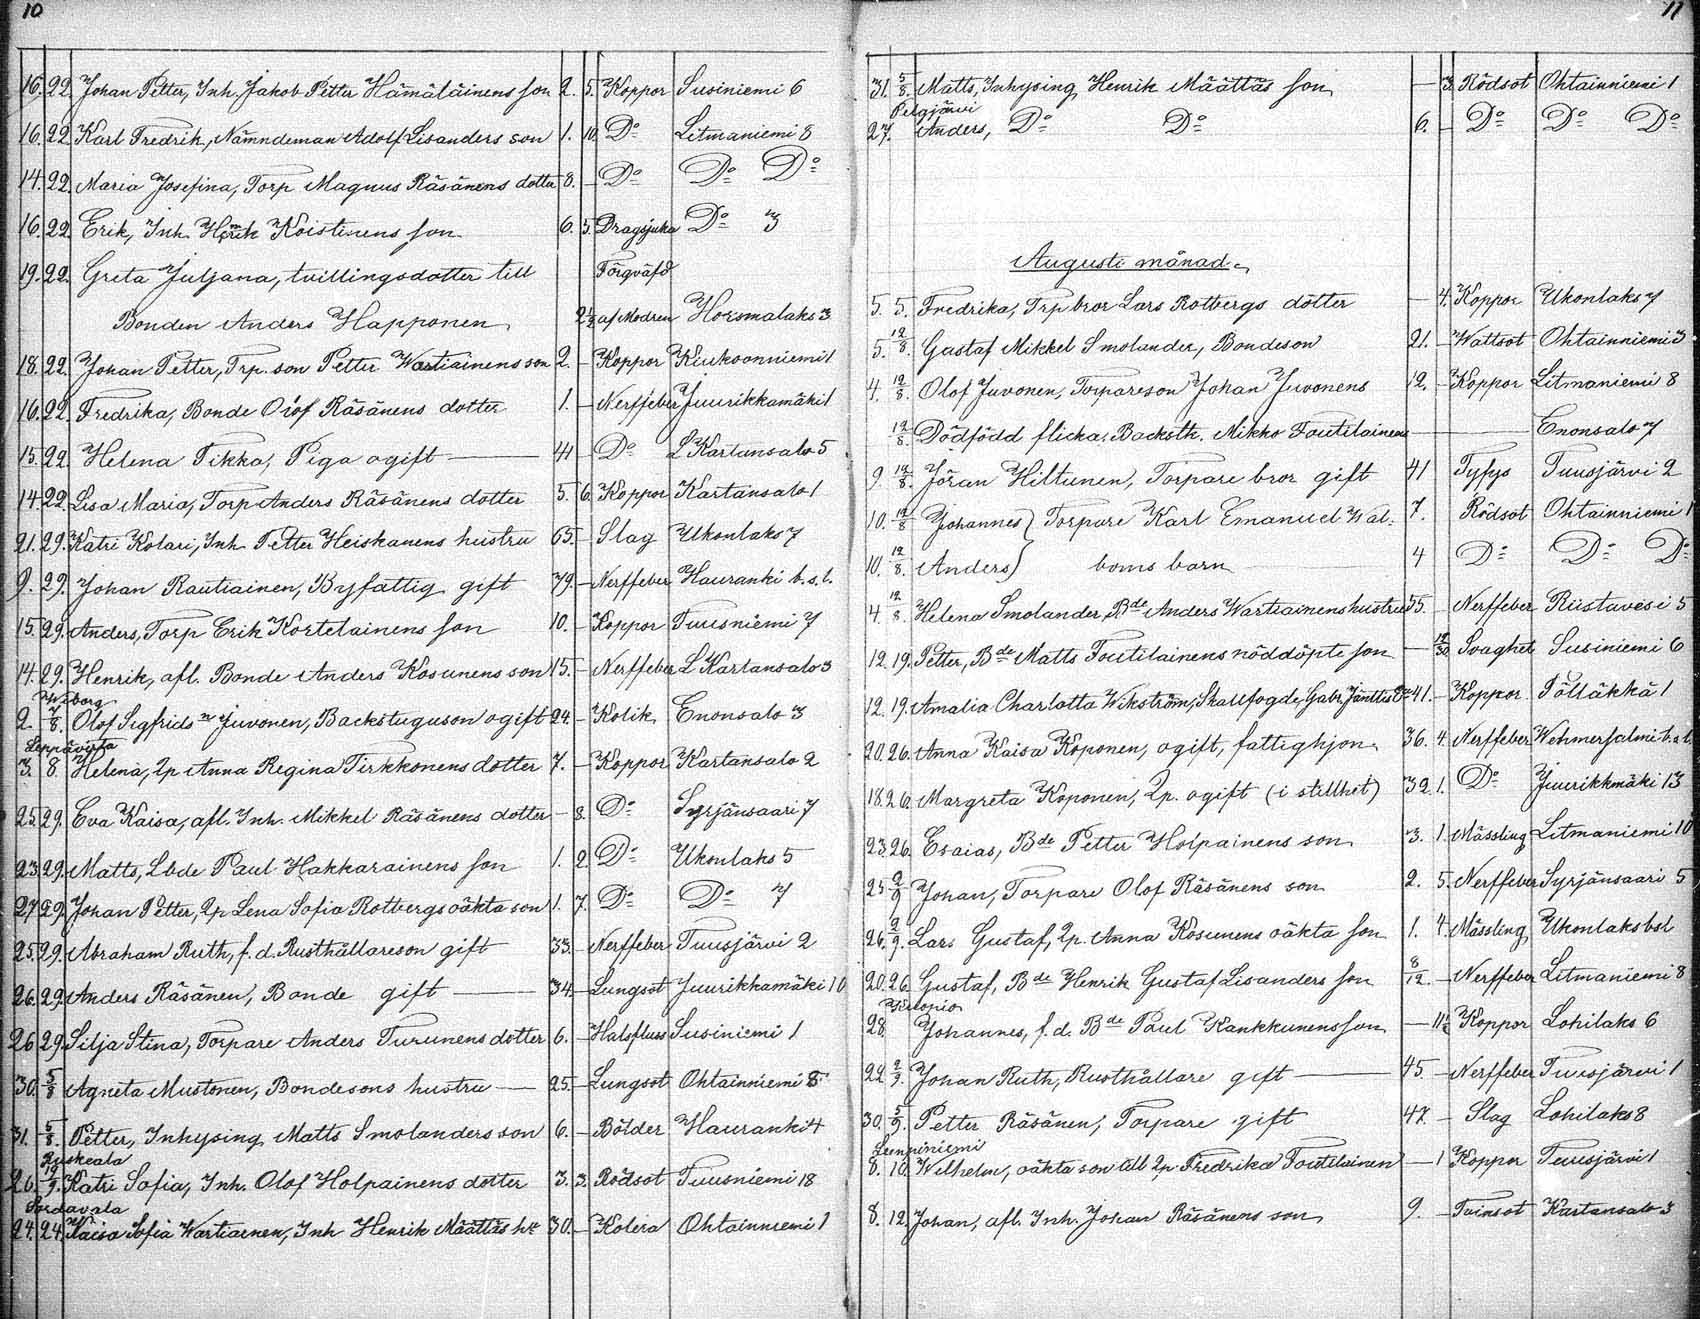 10
16. 22. Johan Petter, Inh. Jakob Petter Hämäläinens son 2. 5. Koppor Susiniemi 6
16. 22. Karl Fredrik, Nämndeman Adolf Lisanders son 1. 10. Do Litmaniemi 8
14. 22. Maria Josefina, Torp Magnus Räsänens dotter 8. – Do Do Do
16. 22. Erik, Inh. Henrik Koistinens son 6. 5. Dragsjuka Do 3
19. 22. Greta Juljana, tvillingsdotter till Förqväfd
Bonden Anders Happonen 2½ af Modren Hoxmalaks 3
18. 22. Johan Petter, Trp. son Petter Wartiainens son 2. – Koppor Kiukoonniemi 1
16. 22. Fredrika, Bonde Olof Räsänens dotter 1. – Nerffeber Juurikkamäki 1
15. 22. Helena Tikka, Piga ogift — 41 – Do L Kartansalo 5
14. 22. Lisa Maria, Torp Anders Räsänens dotter 5. 6. Koppor Kartansalo 1
21. 29. Katri Kolari, Inh. Petter Heiskanens hustru 65. – Slag Ukonlaks 7
9. 29. Johan Rautiainen, Byfattig gift 79. – Nerffeber Hauranki b.s.l.
15. 29. Anders, Torp Erik Kortelainens son 10. – Koppor Tuusniemi 7
14. 29. Henrik, afl. Bonde Anders Kosunens son 15. – Nerffeber L Kartansalo 3
Wiborg
2. 7/8. Olof Sigfridsn Juvonen, Backstuguson ogift 24. – Kolik Enonsalo 3
Leppävirta
3. 8. Helena, Lp Anna Regina Tirkkonens dotter 7. – Koppor Kartansalo 2
25. 29. Eva Kaisa, afl. Inh. Mikkel Räsänens dotter – 8. Do Syrjänsaari 7
23. 29. Matts, Lbde Paul Hakkarainens son 1. 2. Do Ukonlaks 5
27. 29. Johan Petter, Lp Lena Sofia Rotbergs oäkta son 1. 7. Do Do 7
25. 29. Abraham Ruth, f.d. Rusthållareson gift 33. – Nerffeber Tuusjärvi 2
26. 29. Anders Räsänen, Bonde gift — 34. – Lungsot Juurikkamäki 10
26 29. Silja Stina, Torpare Anders Turunens dotter 6. – Halsfluss Susiniemi 1
30. 5/8 Agneta Mustonen, Bondesons hustru — 25. – Lungsot Ohtainniemi 8
31. 5/8. Petter, Inhysing Matts Smolanders son 6. – Bölder Hauranki 4
Ruskeala
26. 19/9. Katri Sofia, Inh. Olof Holpainens dotter 3. 3. Rödsot Tuusniemi 18
Sordavala
24. 24. Kaisa Sofia Wartiainen, Inh Henrik Määttäs hu 30. – Kolera Ohtainniemi 1
11
31. 5/8. Matts, Inhysing Henrik Määttäs son — 3. Rödsot Ohtainniemi 1
Pelgjärvi
27. Anders, Do Do 6. – Do Do Do
Augusti månad.
5. 5. Fredrika, Trp bror Lars Rotbergs dotter – 4. Koppor Ukonlaks 7
5. 12/8. Gustaf Mikkel Smolander, Bondeson 21. – Wattsot Ohtainniemi 3
4. 12/8. Olof Juvonen, Torpareson Johan Juvonens 12. – Koppor Litmaniemi 8
12/8. Dödfödd flicka, Backsth. Mikko Toutilainens — Enonsalo 7
9. 12/8. Jöran Hiltunen, Torpare bror gift 41 Tyfys Tuusjärvi 2
10. 12/8 Johannes } Torpare Karl Emanuel Wal- 7. Rödsot Ohtainniemi 1
10. 12/8. Anders } boms barn — 4 Do Do Do
4. 12/8. Helena Smolander, Bde Anders Wartiainens hustru 55. – Nerffeber Riistavesi 5
12. 19. Petter, Bde Matts Toutilainens nöddöpte son – 12/30 Svaghet Susiniemi 6
12. 19. Amalia Charlotta Wikström, Skallfogde Gabr. Jänttis 41. – Koppor Pölläkkä 1
20. 26. Anna Kaisa Koponen, ogift, fattighjon 36. 4. Nerffeber Wehmersalmi b.s.l.
18. 26. Margreta Koponen, Lp. ogift (i stillhet) 32. 1. Do Juurikkmäki 13
23. 26. Esaias, Bde Petter Holpainens son 3. 1. Mässling Litmaniemi 10
25 2/9 Johan, Torpare Olof Räsänens son 2. 5. Nerffeber Syrjänsaari 5
26. 2/9. Lars Gustaf, Lp. Anna Kosunens oäkta son 1. 4. Mässling Ukonlaks bsl
20. 26. Gustaf, Bde Henrik Gustaf Lisanders son 8/12. – Nerffeber Litmaniemi 8
Kuopio
28. Johannes, f.d. Bde Paul Kankkunens son – 11½ Koppor Lohilaks 6
22. 2/9. Johan Ruth, Rusthållare gift — 45. – Nerffeber Tuusjärvi 1
30. 5/9. Petter Räsänen, Torpare gift 47. – Slag Lohilaks 8
8. 10. Wilhelm, oäkta son till Lp Fredrika Toutilainen – 1 Koppor Tuusjärvi 1
8. 12. Johan, afl. Inh. Johan Räsänens son 9. – Tvinsot Kartansalo 3